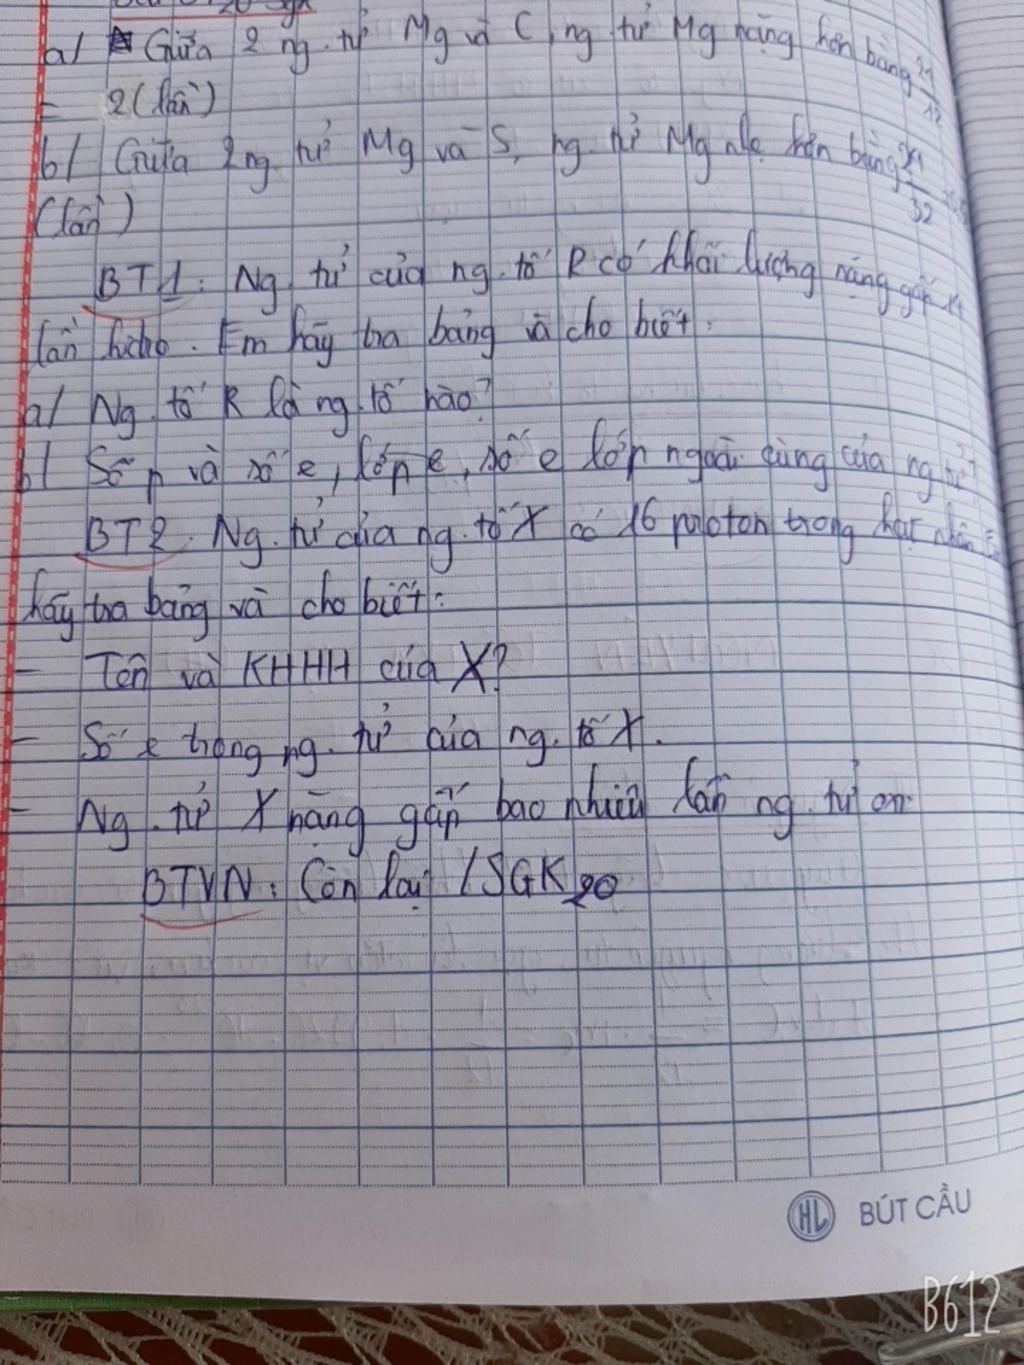 a/ Giữa 2 ng. tử Mg và C, ng tử Mg nặng hơn bằng 24/12
= 2 (lần)
b/ Giữa 2 ng. tử Mg và S, ng. tử Mg nhẹ hơn bằng 24/32
(lần)
BT1: Ng tử của ng. tố R có khối lượng nặng gấp 14
lần hidro. Em hãy tra bảng và cho biết:
a/ Ng. tố R là ng. tố nào?
b/ Số p và số e, lớp e, số e lớp ngoài cùng của ng tử?
BT2. Ng. tử của ng. tố X có 16 proton trong hạt nhân
hãy tra bảng và cho biết:
- Tên và KHHH của X?
- Số e trong ng. tử của ng. tố X.
- Ng. tử X nặng gấp bao nhiêu lần ng. tử oxi
BTVN: Còn lại /SGK 20
HL BÚT CẦU
B612